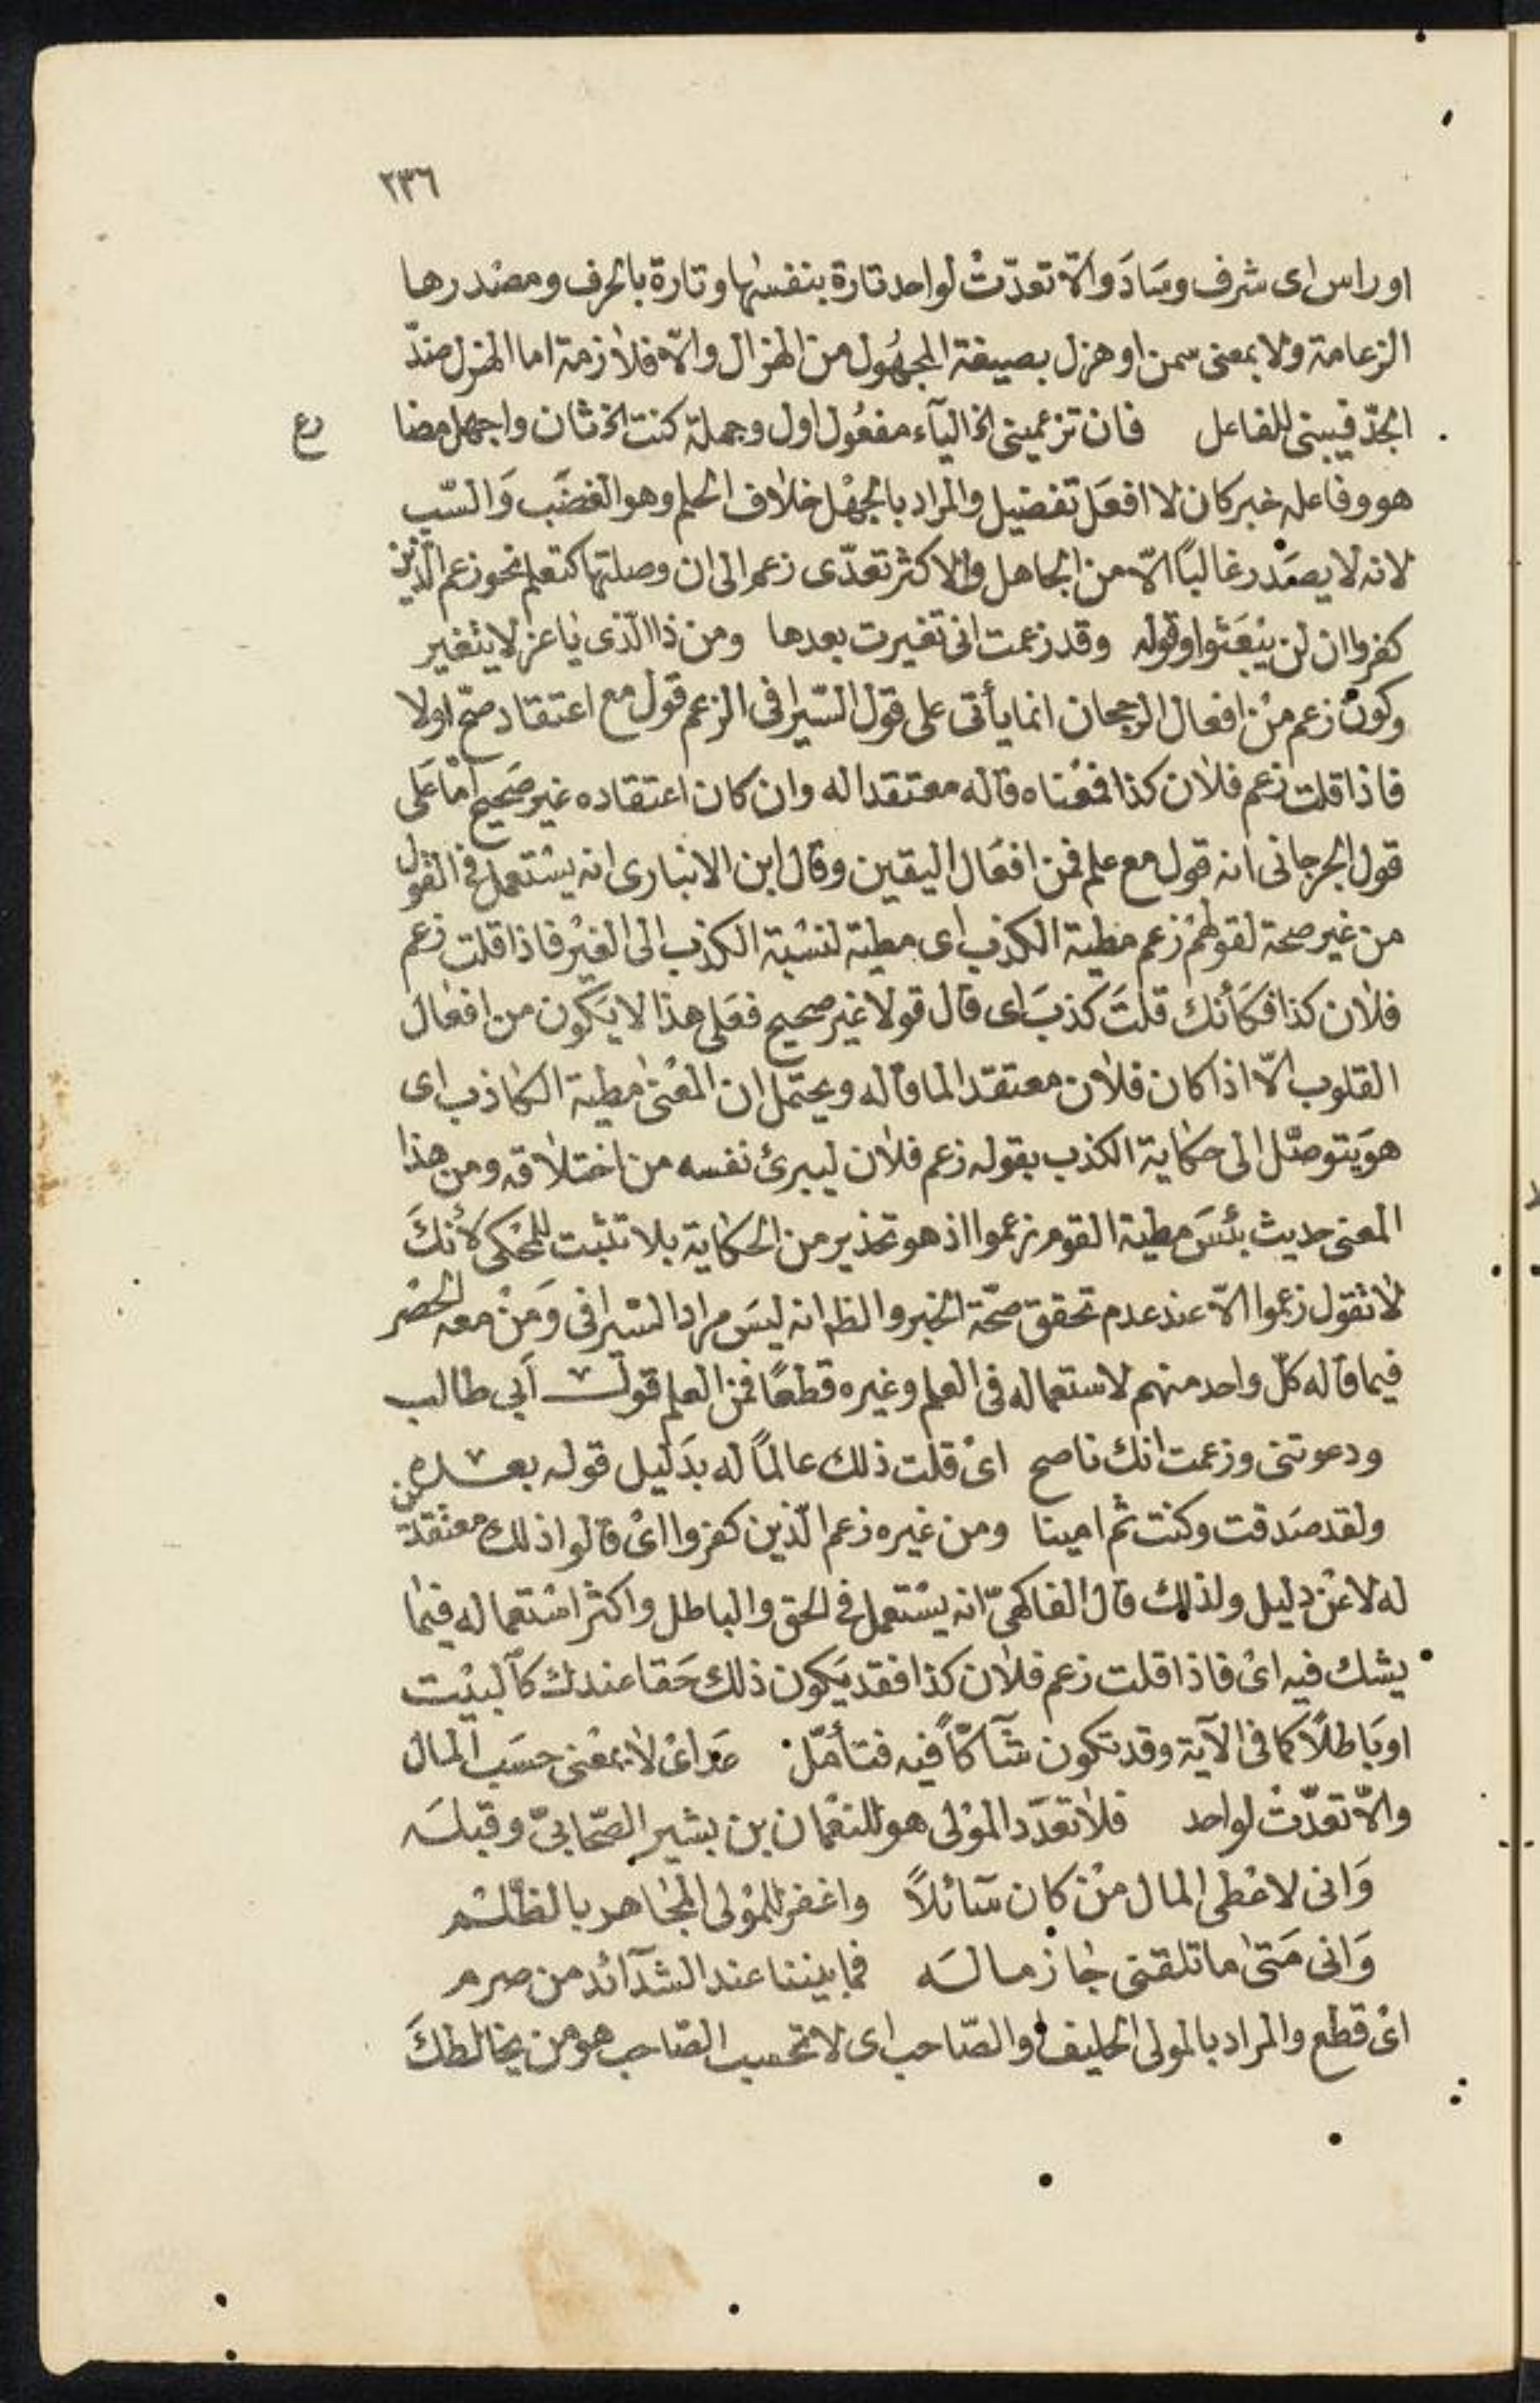 ٢٣٦
اوراس اى شرف وسَادَ والّا تعدّتْ لواحد تارة بنفسها وتارة بالحرف ومصْدرها
الزعامة ولا بمعنى سمن او هزل بصيغة المجهُول من الهزال والّا فلازمة اما الهزل ضدّ
الجدّ فيبنى للفاعل فان تزعمينى الخ اليآء مفعُول اول وجملة كنت الخ ثان واجهل مضا
رع
هو وفاعله خبر كان لا افعَل تفضيل والمراد بالجهْل خلاف الحلم وهو الغضَب وَالسّب
لانه لا يصَدر غالبًا الّا من الجاهل والاكثر تعدّى زعم الى ان وصلتها كتعلم نحو زعم الّذين
كفروا ان لن يبْعَثوا وقوله وقد زعمت انى تغيرت بعدها ومن ذا الّذى ياعز لا يتغير
وكونْ زعم منْ افعال الرجحان انما يأتى على قول السّيرافى الزعم قول مع اعتقاد صحّ اولا
فاذا قلت زعم فلان كذا فمعْناه قاله معتقدا له وان كان اعتقاده غير صَحيح امْا عَلى
قول الجرجانى انه قول مع علم فمن افعَال اليقين وقال ابن الانبارى انه يسْتعمل فى القول
من غير صحة لقولهمْ زعم مطية الكذب اى مطية لنسْبة الكذب الى الغيْر فاذا قلت زعم
فلان كذا فكَأنك قلتَ كَذبَ اى قال قولا غير صحيح فعَلى هذا لا يَكون من افعال
القلوب الّا اذا كان فلان معتقدا لما قاله ويحتمل ان المعْنى مطية الكاذب اى
هوَ يتوصّل الى حكاية الكذب بقوله زعم فلان ليبرئ نفسه من اختلاقه ومن هذا
المعنى حديث بئسَ مطية القوم زعموا اذ هو تحذير من الحكاية بلا تثبت للمحْكى لأنكَ
لا تقول زعموا الّا عند عدم تحقق صحّة الخبر والظ انه ليسَ مراد السْيرافى وَمَنْ معه الحصْر
فيما قاله كلّ واحد منهم لاستعماله فى العلم وغيره قطعًا فمن العلم قول أبى طالب
ودعوتنى وزعمت انك ناصح اىْ قلت ذلك عالمًا له بدَليل قوله بعده
ولقد صَدقت وكنت ثم امينا ومن غيره زعم الّذين كفروا اىْ قالوا ذلك معتقدين
له لا عنْ دليل ولذلك قال الفاكهىّ انه يسْتعمل فى الحق والباطل واكثر اسْتعماله فيما
يشك فيه اىْ فاذا قلت زعم فلان كذا فقد يَكون ذلك حَقا عندك كالبيْت
اوبَاطلًا كما فى الآية وقد تكون شآكّاً فيه فتأمّل عد اىْ لا بمعْنى حسَب المال
والّا تعدّتْ لواحد فلا تعدَد المؤلى هو للنعْمان بن بشير الصّحابىّ وقبلَه
وَانى لاعْطى المال منْ كان سَآئلاً واغفر للمؤلى المجَاهر بالظّلم
وَانى مَتى ما تلقنى جازما لَه فما بيننا عند الشدآئد من صرم
اىْ قطع والمراد بالمولى الحليف او الصّاحب اى لا تحسب الصّاحب هو من يخالطكَ